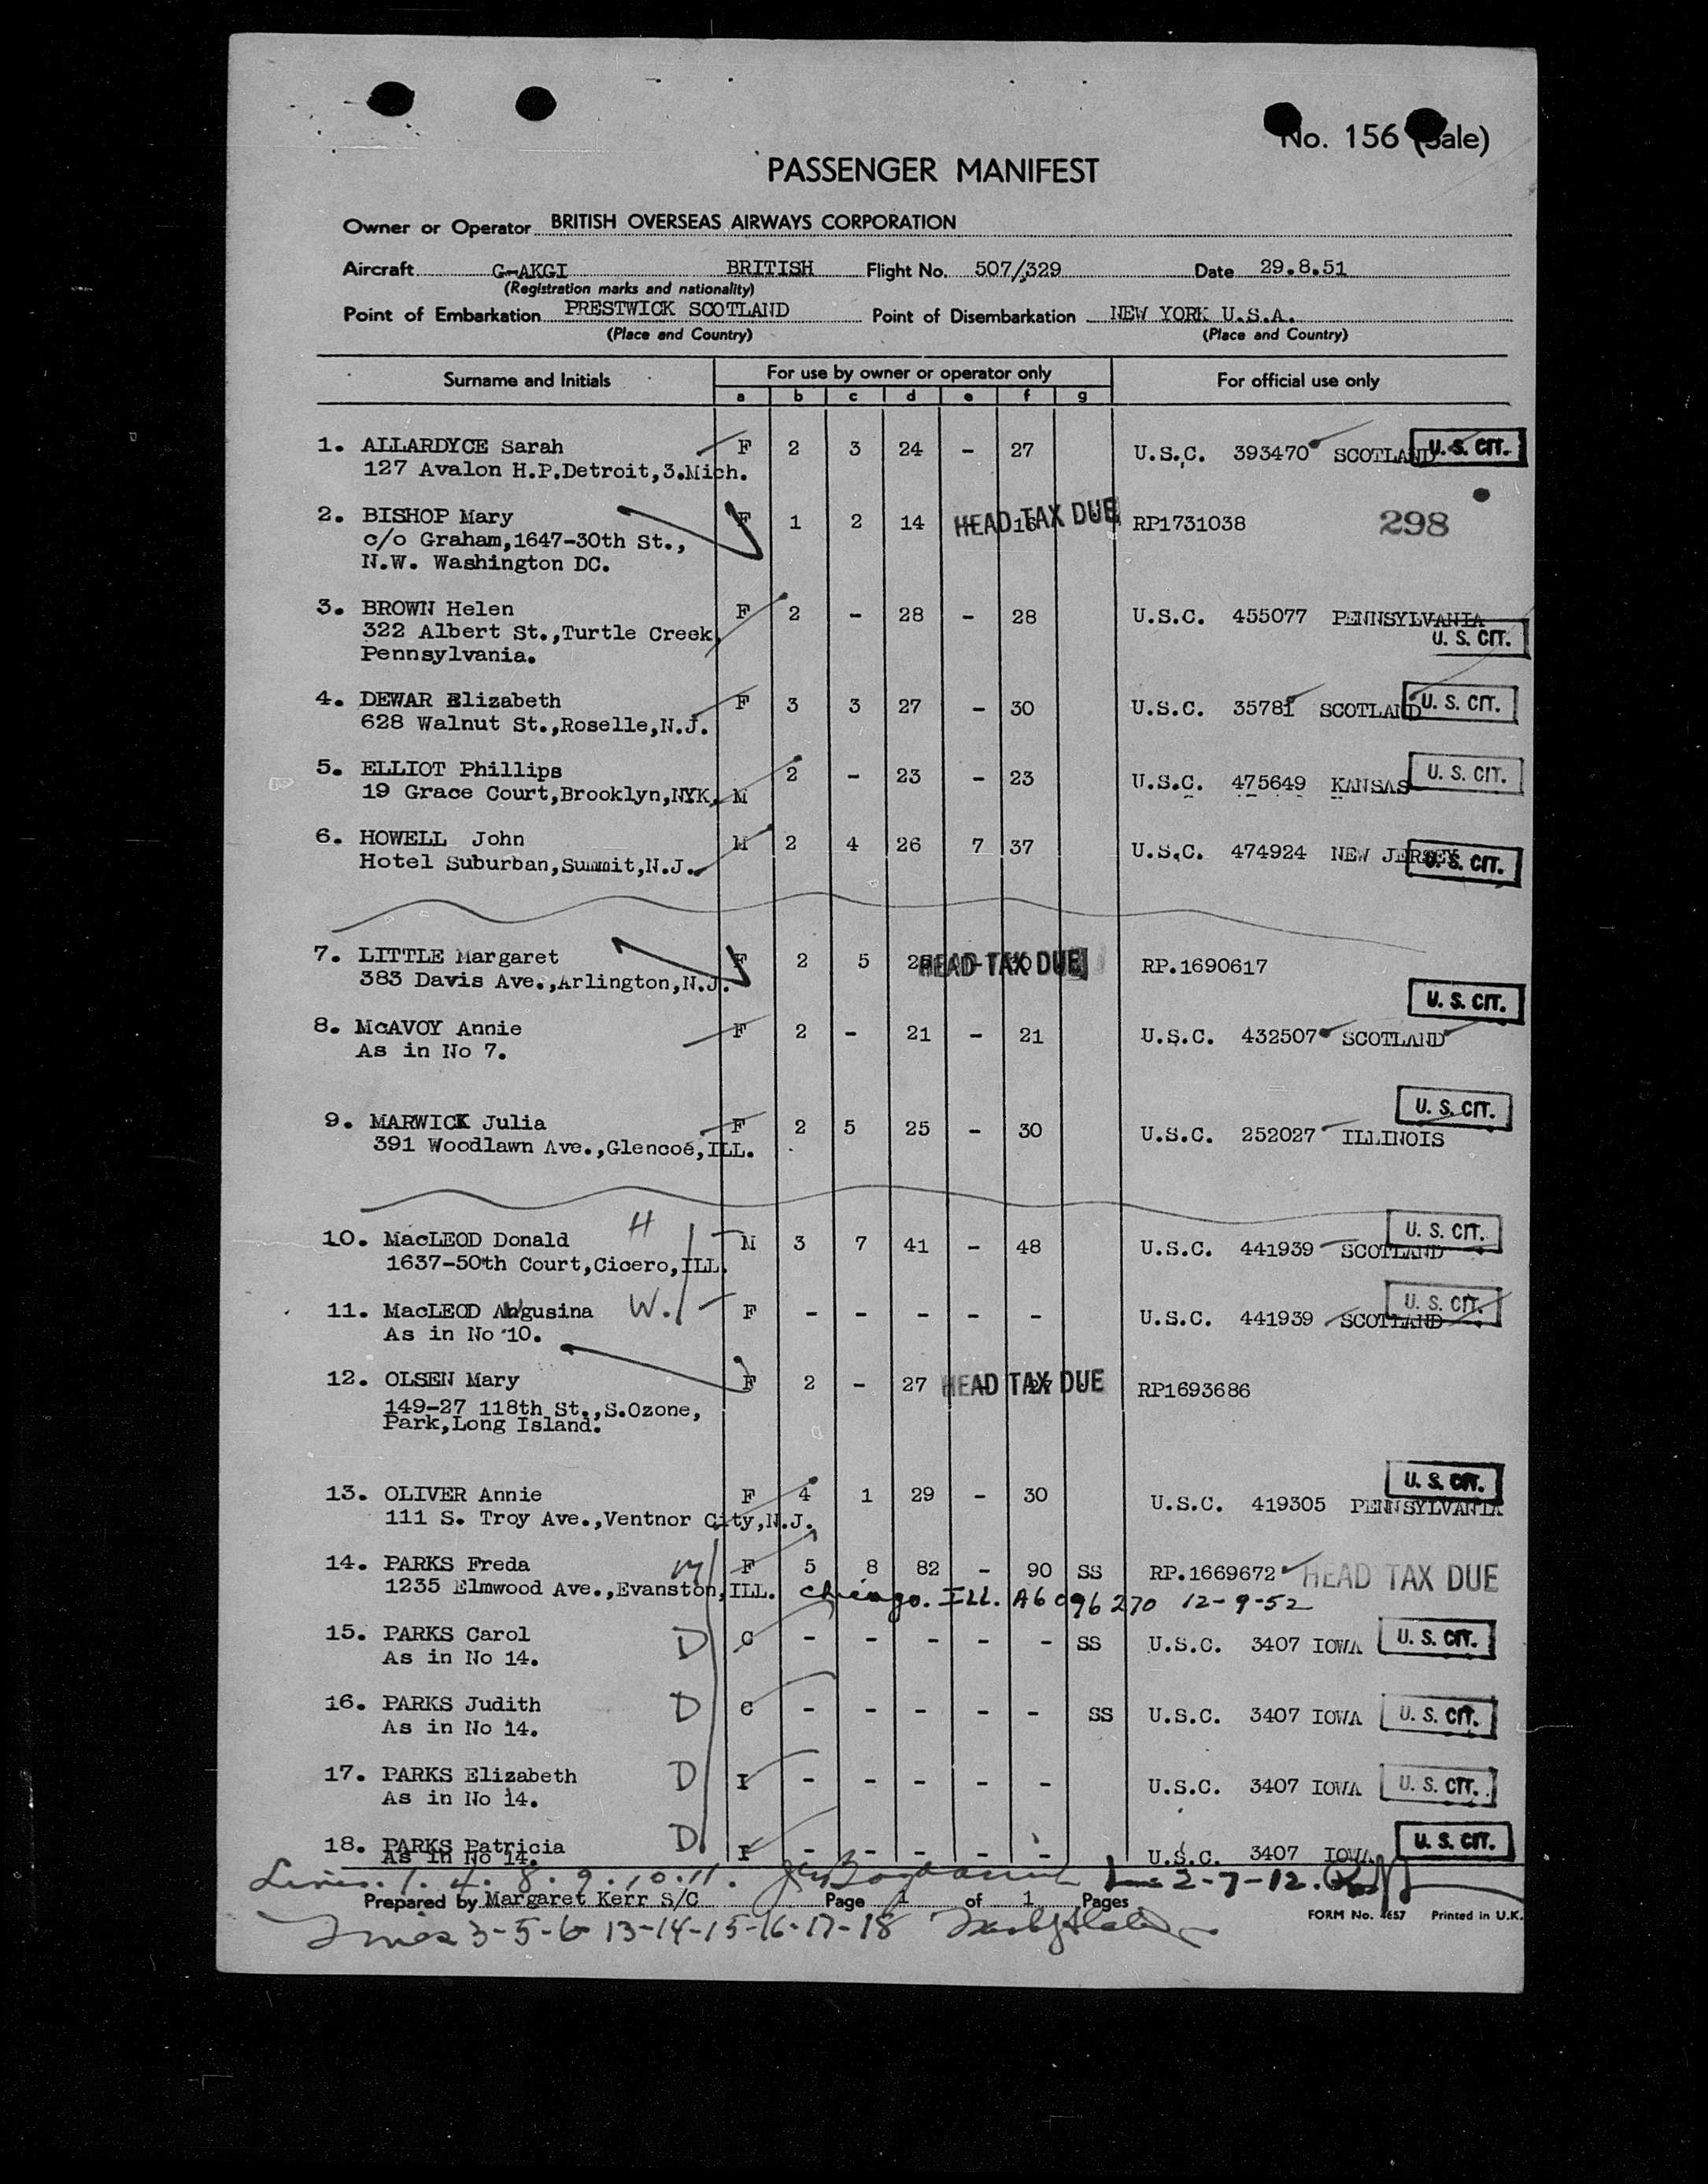 No. 156 (Sale)
PASSENGER MANIFEST
Owner or Operator BRITISH OVERSEAS AIRWAYS CORPORATION
Aircraft G-AKGI BRITISH Flight No. 507/329 Date 29.8.51
(Registration marks and nationality)
Point of Embarkation PRESTWICK SCOTLAND Point of Disembarkation NEW YORK U.S.A.
(Place and Country) (Place and Country)
Surname and Initials For use by owner or operator only For official use only
a b c d e f g
1. ALLARDYCE Sarah F 2 3 24 - 27 U.S.C. 393470 SCOTLAND U. S. CIT.
127 Avalon H.P.Detroit,3.Mich.
2. BISHOP Mary F 1 2 14 - 16 HEAD TAX DUE RP1731038 298
c/o Graham,1647-30th St.,
N.W. Washington DC.
3. BROWN Helen F 2 - 28 - 28 U.S.C. 455077 PENNSYLVANIA
322 Albert St.,Turtle Creek U. S. CIT.
Pennsylvania.
4. DEWAR Elizabeth F 3 3 27 - 30 U.S.C. 35781 SCOTLAND U. S. CIT.
628 Walnut St.,Roselle,N.J.
5. ELLIOT Phillips 2 - 23 - 23 U.S.C. 475649 KANSAS U. S. CIT.
19 Grace Court,Brooklyn,NYK. M
6. HOWELL John M 2 4 26 7 37 U.S.C. 474924 NEW JERSEY U. S. CIT.
Hotel Suburban,Summit,N.J.
7. LITTLE Margaret F 2 5 HEAD TAX DUE RP.1690617
383 Davis Ave.,Arlington,N.J.
U. S. CIT.
8. McAVOY Annie F 2 - 21 - 21 U.S.C. 432507 SCOTLAND
As in No 7.
U. S. CIT.
9. MARWICK Julia F 2 5 25 - 30 U.S.C. 252027 ILLINOIS
391 Woodlawn Ave.,Glencoe,ILL.
10. MacLEOD Donald H M 3 7 41 - 48 U.S.C. 441939 SCOTLAND U. S. CIT.
1637-50th Court,Cicero,ILL.
11. MacLEOD Angusina W. F - - - - - U.S.C. 441939 SCOTLAND U. S. CIT.
As in No 10.
12. OLSEN Mary F 2 - 27 - 27 HEAD TAX DUE RP1693686
149-27 118th St.,S.Ozone,
Park,Long Island.
13. OLIVER Annie F 4 1 29 - 30 U.S.C. 419305 PENNSYLVANIA U. S. CIT.
111 S. Troy Ave.,Ventnor City,N.J.
14. PARKS Freda M F 5 8 82 - 90 SS RP.1669672 HEAD TAX DUE
1235 Elmwood Ave.,Evanston,ILL. Chicago. ILL. A6096270 12-9-52
15. PARKS Carol D C - - - - - SS U.S.C. 3407 IOWA U. S. CIT.
As in No 14.
16. PARKS Judith D C - - - - - SS U.S.C. 3407 IOWA U. S. CIT.
As in No 14.
17. PARKS Elizabeth D I - - - - - U.S.C. 3407 IOWA U. S. CIT.
As in No 14.
18. PARKS Patricia D I - - - - - U.S.C. 3407 IOWA U. S. CIT.
As in No 14.
Lines. 1. 4. 8. 9. 10. 11. 2-7-12.
Prepared by Margaret Kerr S/C Page 1 of 1 Pages
FORM No. 4657 Printed in U.K.
Lines 3-5-6-13-14-15-16-17-18